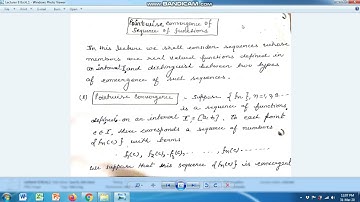 www.BANDICAM.com
Pointwise Convergence of
Sequence of functions
In this lecture we shall consider sequences whose
members are real valued functions defined in
an interval I and distinguish between two types
of convergence of such sequences.
(1) Pointwise Convergence - Suppose {fn}, n=1,2,3...
is a sequence of functions,
defined on an interval I = [a, b]. To each point
c ∈ I, there corresponds a sequence of numbers
{fn(c)} with terms
f1(c), f2(c), f3(c), ...... fn(c) ......
We suppose that this sequence {fn(c)} is convergent